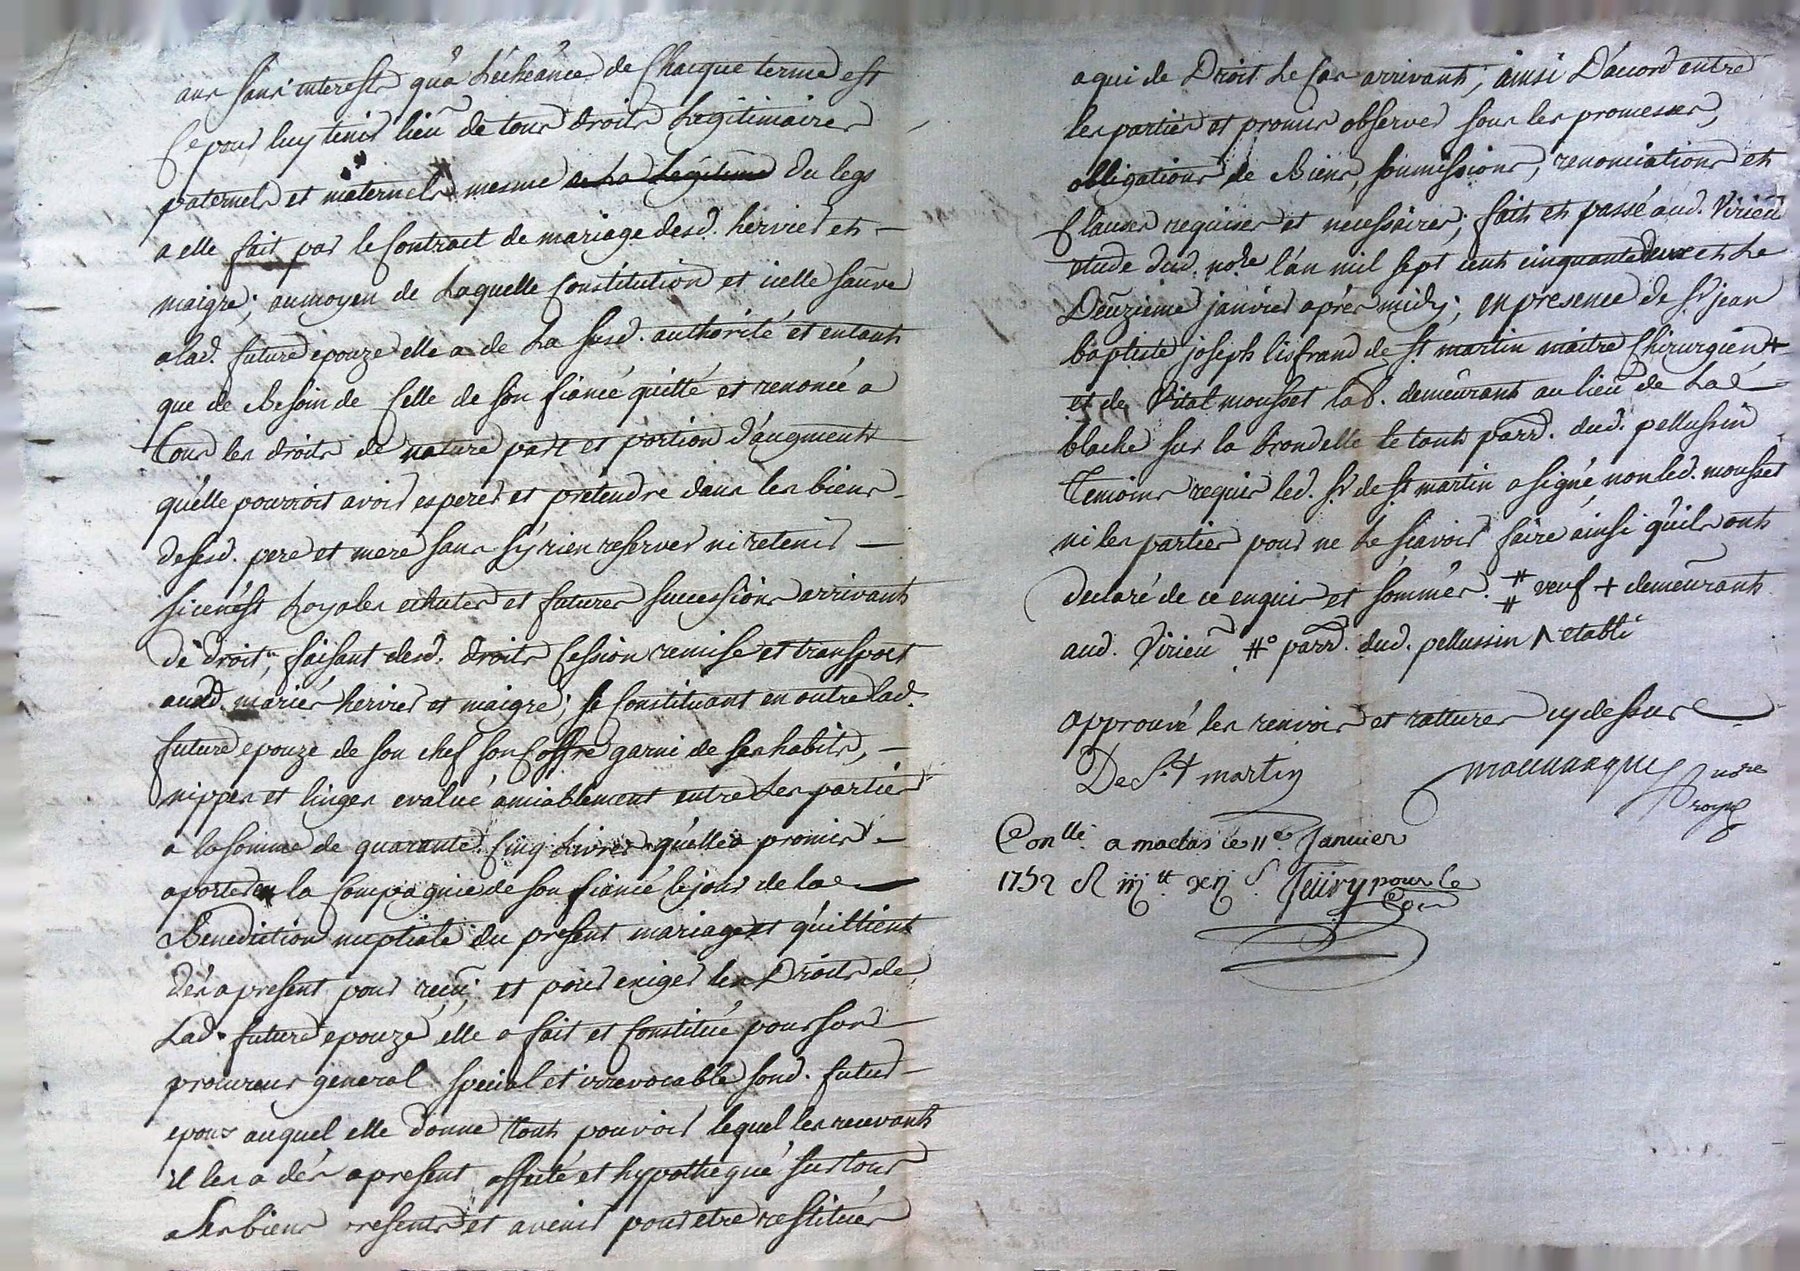 ans sans interests qu'a L'écheance de Chacque terme est
Ce pour luy tenir lieu de tous droits Légitimaires
paternels et maternels # mesme de La Légitime du legs
a elle fait par le Contract de mariage desd. hervier et
maigre; au moyen de Laquelle Constitution et icelle sauve
a lad. future epouze elle a de La susd. authorité et entant
que de Besoin de Celle de son fiancé quitté et renoncé a
Tous les droits de nature part et portion d'augment
qu'elle pourroit avoir esperer et prétendre dans les biens
desesd. pere et mere sans s'y rien reserver ni retenir
si ce n'est Loyales echutes et futures successions arrivant
de droit; faisant desd. droits Cession remise et transport
auxd. mariés hervier et maigre; se Constituant en outre lad.
future epouze de son chef son Coffre garni de ses habits,
nippes et linges evalué amiablement entre Les parties
a la somme de quarante Cinq Livres qu'elle a promis
aporter en la Compagnie de son fiancé le jour de la
Benediction nuptiale du present mariage et qu'il tient
dès a present pour reçu; et pour exiger les Droits de
Lad. future epouze, elle a fait et Constitué pour son
procureur general special et irrevocable sond. futur
epoux auquel elle donne tout pouvoir lequel les recevant
il les a dés a present affecté et hypothequé sur tous
Ses biens presents et avenir pour etre restitués
a qui de Droit Le Cas arrivant; ainsi D'acord entre
les parties et promis observer sous les promesses,
obligations de Biens, soumissions, renonciations et
Clauses requises et necessaires; fait et passé aud. Virieu
etude dud. no.re l'an mil sept cent cinquante deux et Le
Deuzieme janvier aprés midy; en presence de Sr. jean
baptiste joseph lisfrand de St martin maitre Chirurgien +
et de Vital mousset lab. demeurant au lieu de La
blache sur la brondelle le tout parr. dud. pellussin
Temoins requis led. Sr. de St martin a signé non led. mousset
ni les parties pour ne Le sçavoir faire ainsi qu'ils ont
declaré de ce enquis et sommés. # veuf + demeurant
aud. Virieu #° parr. dud. pellussin Λ etabli
approuvé les renvois et ratures cy dessus
De St martin
Con.llé a maclas le 11e Janvier
1752 R iij tt xij s. pour le